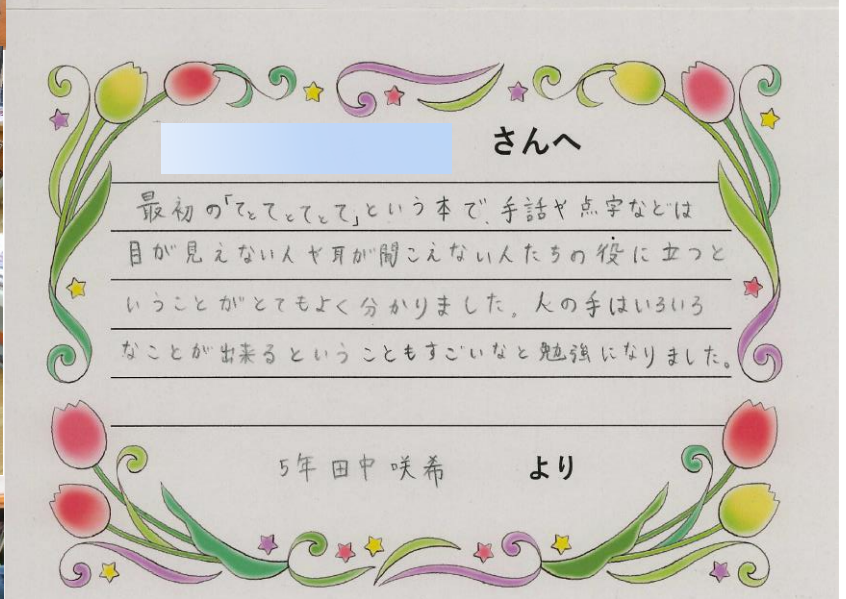 さんへ
最初の「てとてとてとて」という本で、手話や点字などは
目が見えない人や耳が聞こえない人たちの役に立つと
いうことがとてもよく分かりました。人の手はいろいろ
なことが出来るということもすごいなと勉強になりました。
5年 田中 咲希 より